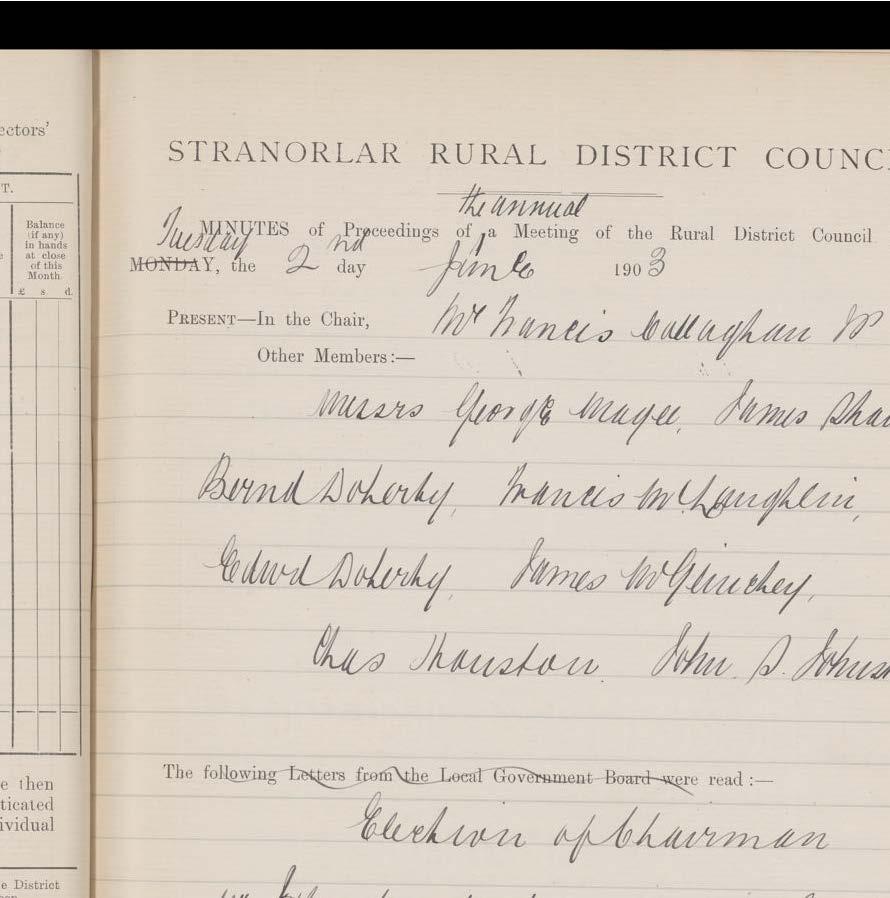 ectors'
T.
Balance
(if any)
in hands
at close
of this
Month.
£ s. d.
e then
ticated
ividual
e District
STRANORLAR RURAL DISTRICT COUNC
the annual
MINUTES of Proceedings of a Meeting of the Rural District Council
Tuesday
MONDAY, the 2nd day June 1903
PRESENT—In the Chair, Mr Francis Callaghan JP
Other Members:—
Messrs George Magee, James Shar
Bernd Doherty, Francis McLaughlin,
Edwd Doherty, James McGlinchey,
Chas Houston. John. S. Johns
The following Letters from the Local Government Board were read :—
Election of Chairman